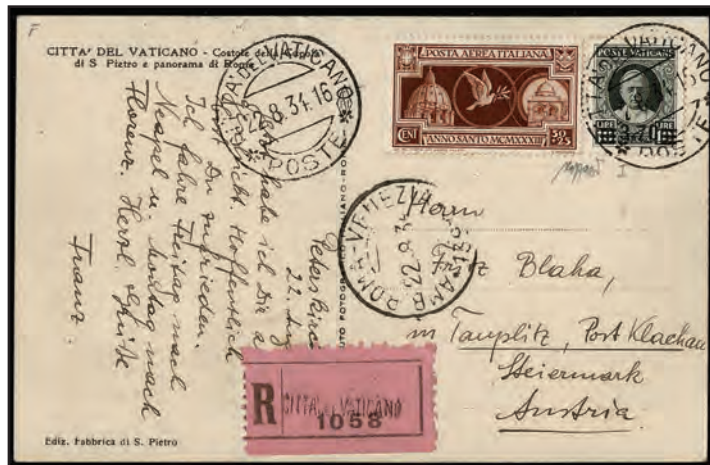 CITTA' DEL VATICANO - Costole della Cupola
di S. Pietro e panorama di Roma
CITTA' DEL VATICANO
22.8.34.16
POSTE
POSTA AEREA ITALIANA
CENT 50+25
ANNO SANTO MCMXXXIII
POSTE VATICANE
LIRE LIRE
3.70
CITTA' DEL VATICANO
POSTE
AMB. ROMA-VENEZIA
22.8.34
Peterskirche
22. Aug
habe ich Dir
Hoffentlich
bist Du zufrieden.
Ich fahre Freitag nach
Neapel u. Montag nach
Florenz. Herzl. Grüße
Franz.
Herrn
Fritz Blaha,
in Tauplitz, Post Klachau
Steiermark
Austria
R
CITTA DEL VATICANO
1058
Ediz. Fabbrica di S. Pietro